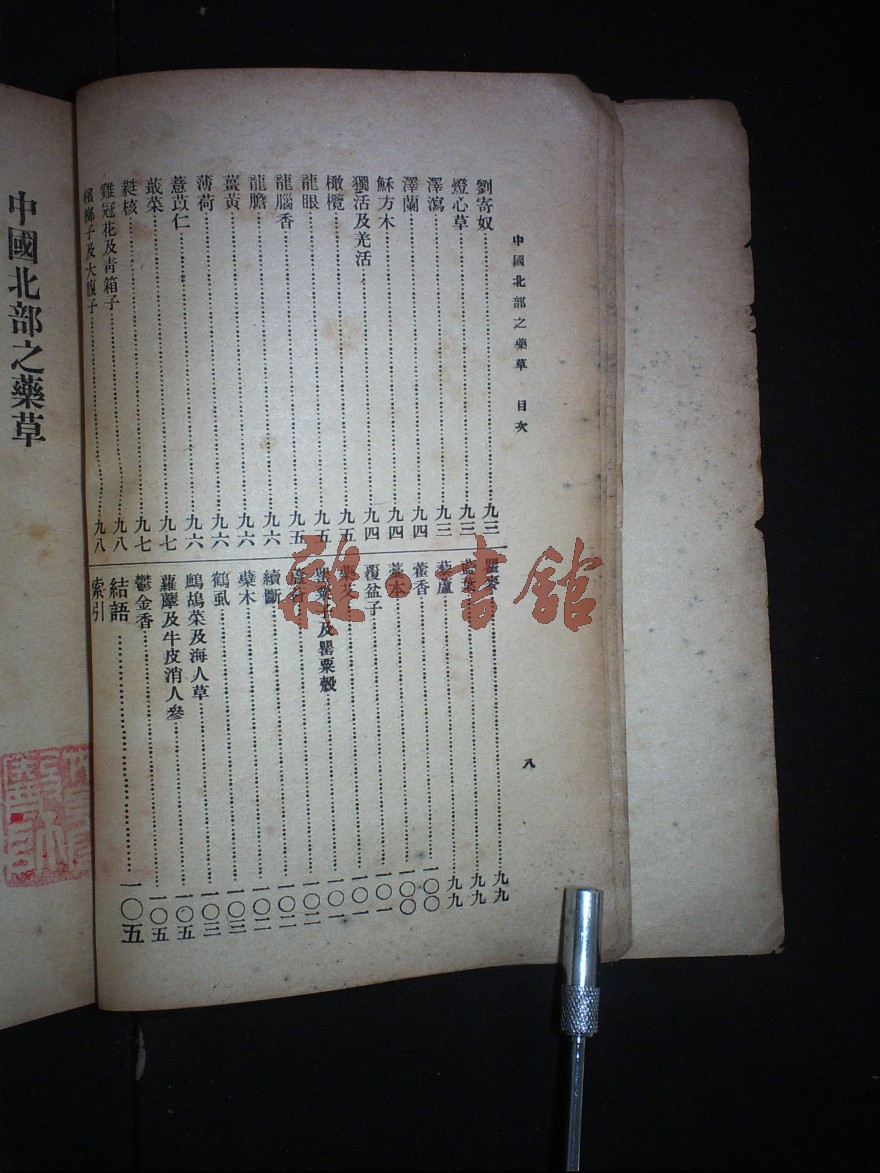 中國北部之藥草 目次
八
劉寄奴……九三
燈心草……九三
澤瀉……九三
澤蘭……九四
穌方木……九四
獨活及光活……九四
橄欖……九五
龍眼……九五
龍腦香……九五
龍膽……九六
薑黃……九六
薄荷……九六
薏苡仁……九六
蕺菜……九七
蕤核……九七
雞冠花及青箱子……九八
檳榔子及大腹子……九八
瞿麥……九九
藍葉……九九
藜蘆……九九
藿香……一〇〇
藁本……一〇〇
覆盆子……一〇一
……一〇一
罌粟子及罌粟殼……一〇一
……一〇二
續斷……一〇二
蘗木……一〇二
鶴虱……一〇三
鷓鴣菜及海人草……一〇三
蘿藦及牛皮消人參……一〇五
鬱金香……一〇五
結語……一〇五
索引
中國北部之藥草
雜·書館